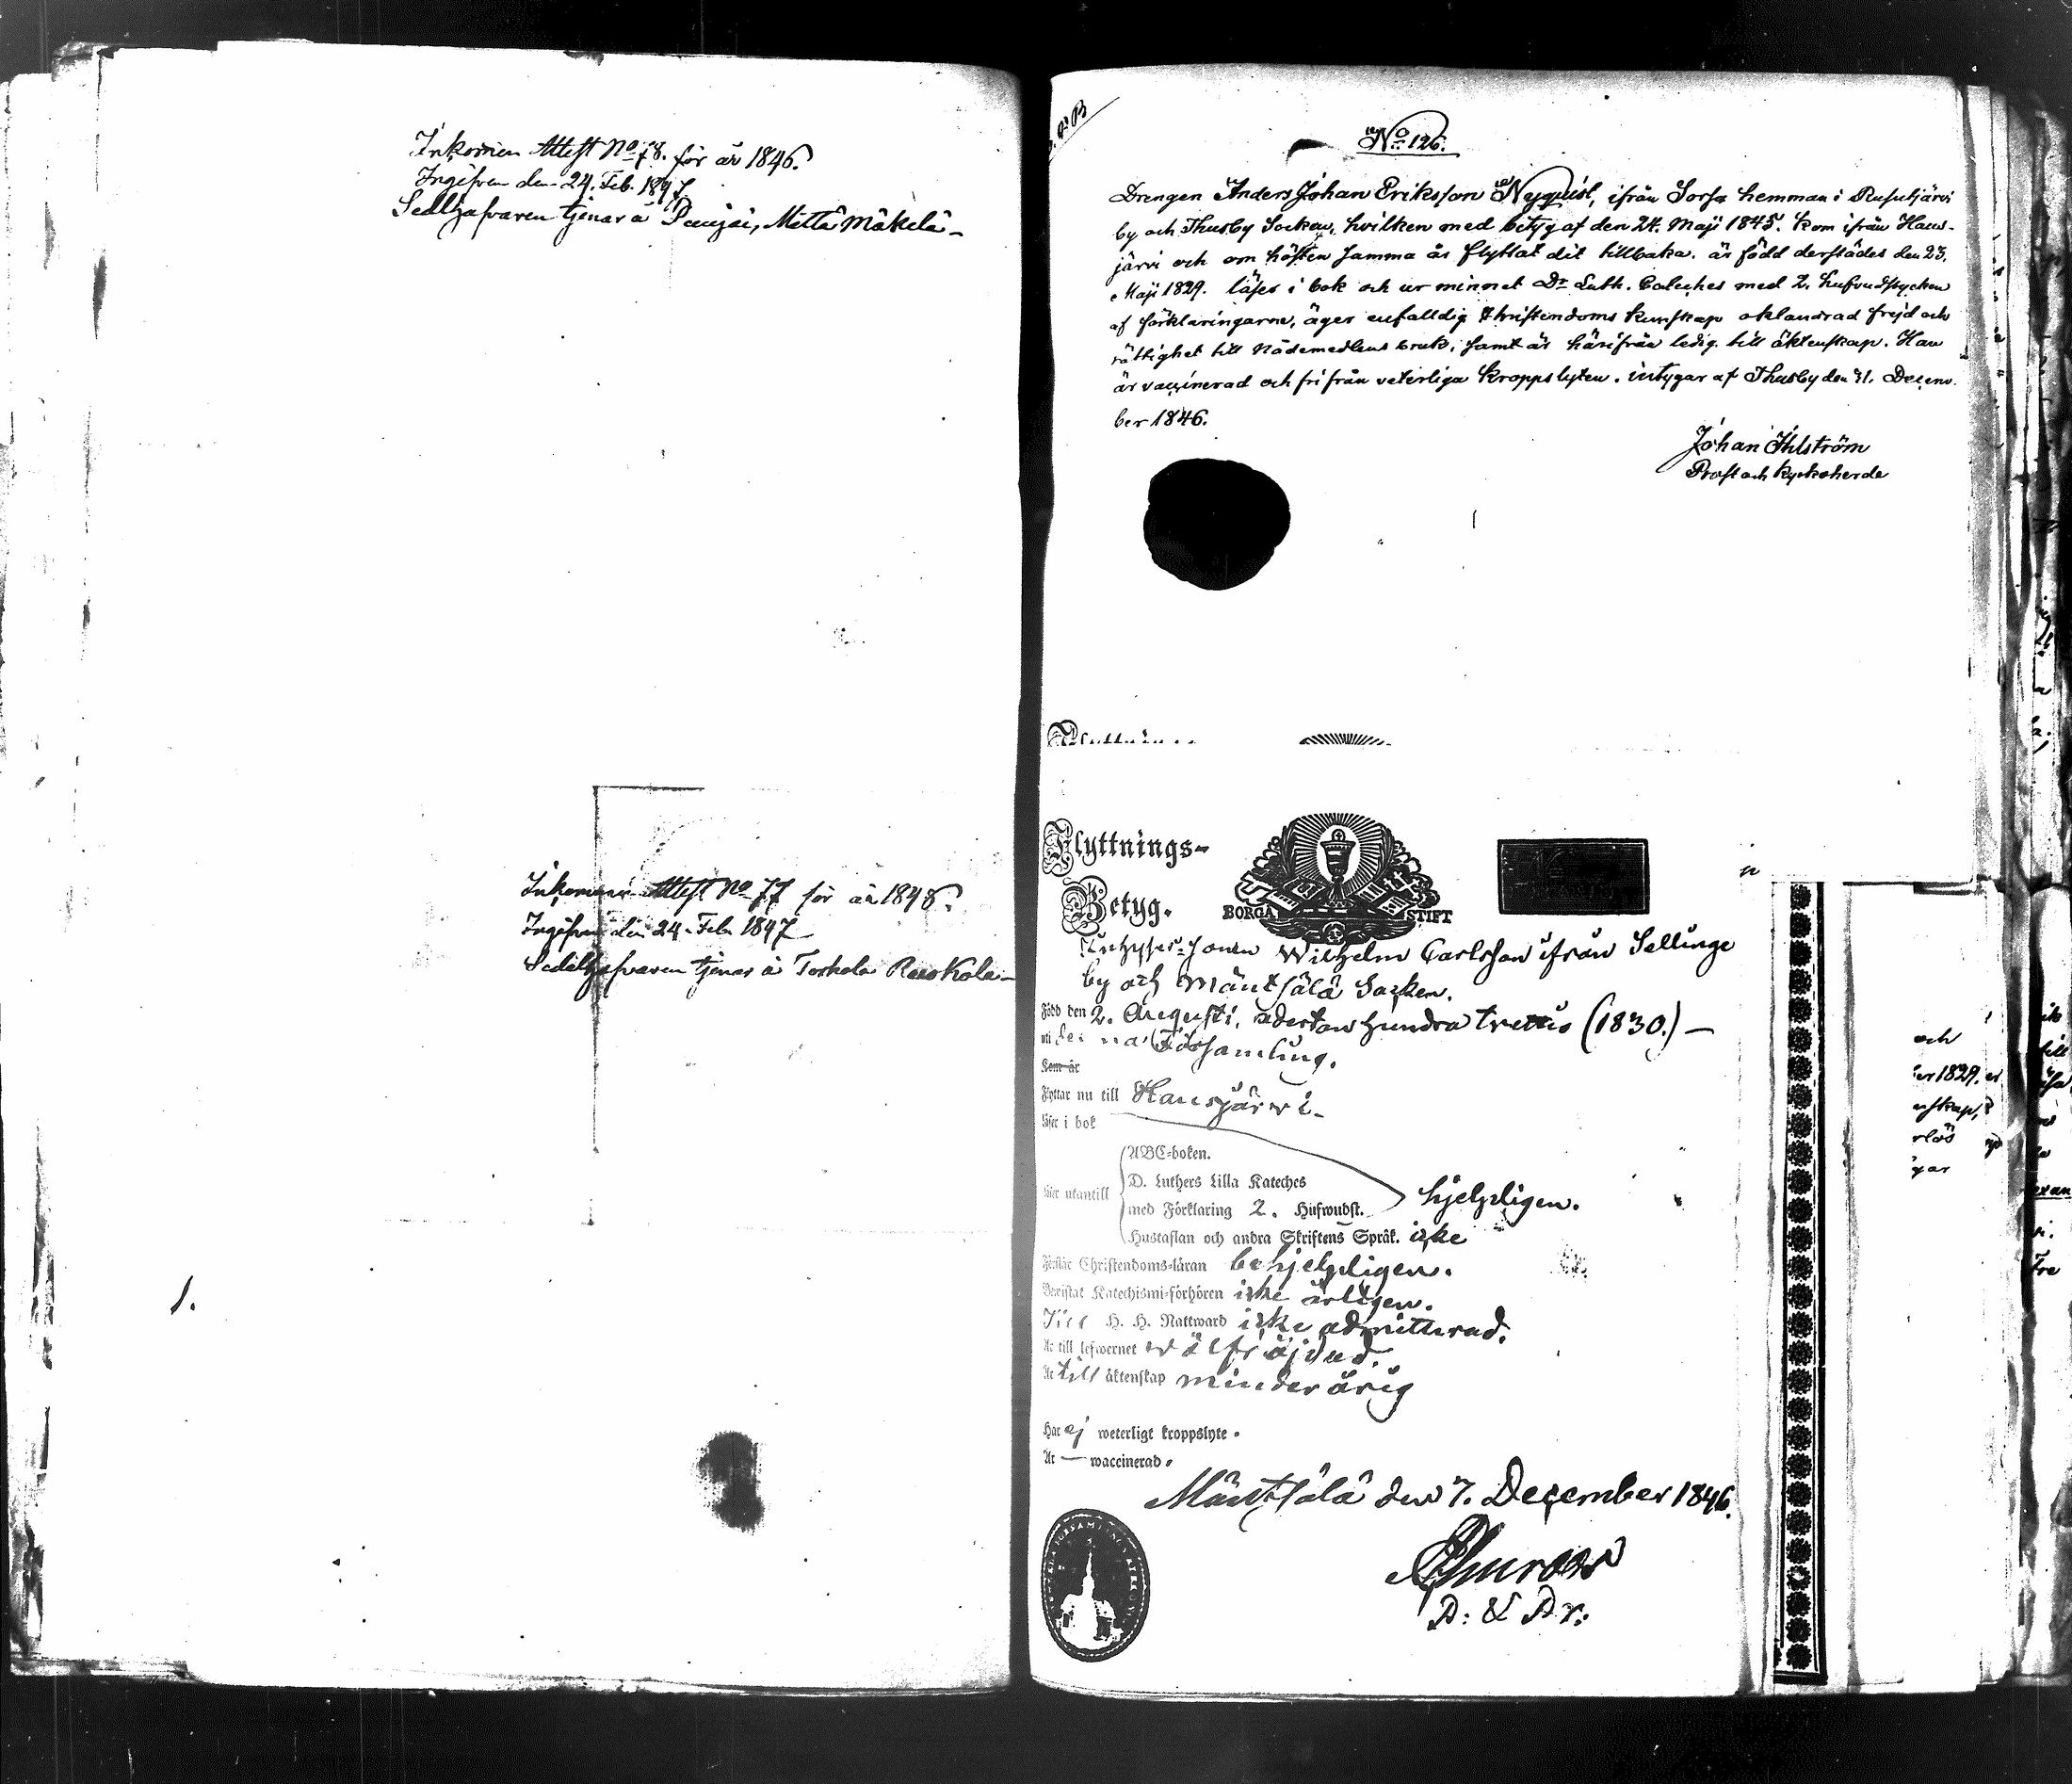 Inkommen Attest No 78. för år 1846.
Ingifven den 24. Feb. 1847.
Sedelhafvaren tjenar å Mattä Mäkelä
Inkommen Attest No 77 för år 1846.
Ingifven den 24. Feb. 1847
Sedelhafvaren tjenar å
1.
No 126.
Drengen Anders Johan Eriksson Nyqvist, ifrån hemman i Rusutjärvi
by och Thusby Socken, hvilken med betyg af den 24. Maji 1845. kom ifrån Haus-
järvi och om hösten samma år flyttat dit tillbaka. är född derstädes den 23.
Maji 1829. läser i bok och ur minnet Dr Luth. Cateches med 2. hufvudstycken
af förklaringarne, äger enfalldig Christendoms kunskap oklandrad frejd och
rättighet till Nådemedlens bruk, samt är härifrån ledig till äktenskap. Han
är vaccinerad och fri från veterliga kroppslyten. intygar af Thusby den 31. Decem-
ber 1846.
Johan Ihlström
Prost och Kyrkoherde
Flyttnings-
Betyg.
BORGÅ STIFT
Wilhelm Carlsson ifrån Sellinge
by och Mäntsälä Socken.
Född den 2. Augusti, adertonhundra trettio (1830.) —
uti Församling.
Kom år
Flyttar nu till Hausjärwi.
Läser i bok
ABC-boken.
D. Luthers Lilla Kateches
Läser utantill
med Förklaring 2. Hufwudst. hjelpligen.
Hustaflan och andra Skriftens Språk. icke
Förstår Christendoms-läran behjelpligen.
Bewistat Katechismi-förhören icke årligen.
Till H. H. Nattward icke admitterad.
Är till lefwernet wälfräjdad.
Är till äktenskap minderårig
Har ej weterligt kroppslyte.
Är — waccinerad.
Mäntsälä den 7. December 1846.
och
1829.